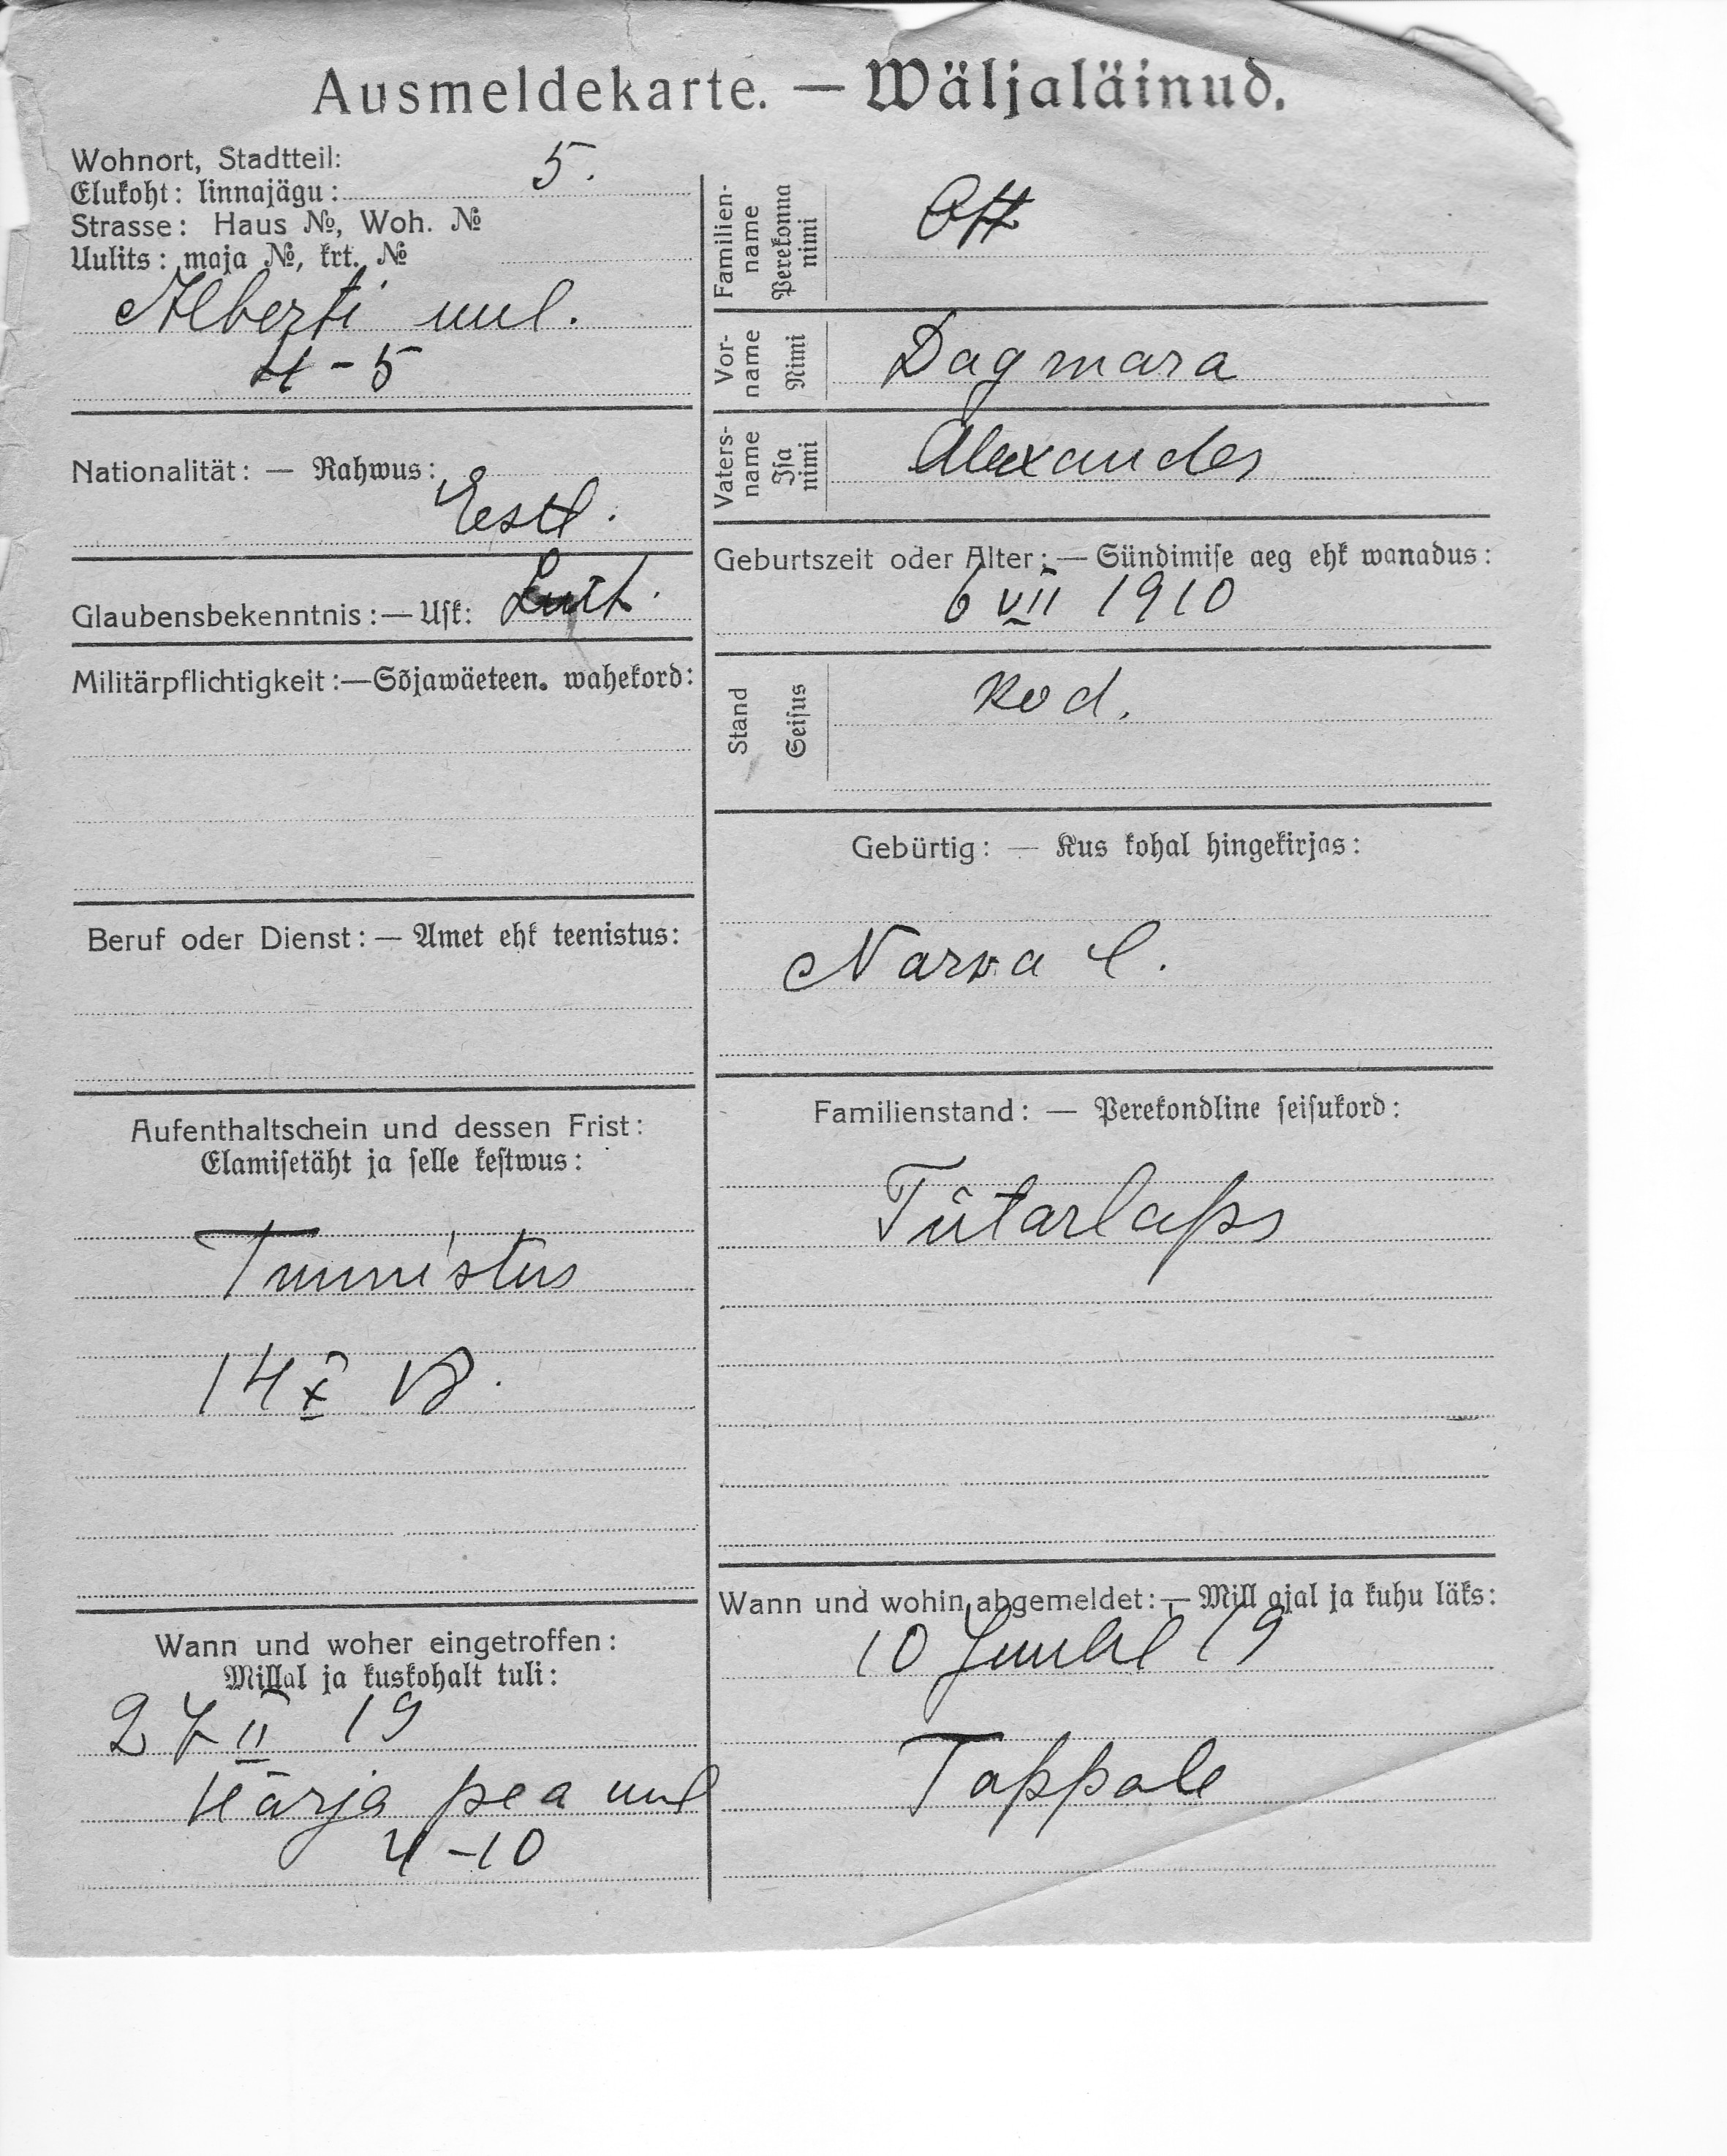 Ausmeldekarte. — Wäljaläinud.
Wohnort, Stadtteil:
Elukoht: linnajägu: 5.
Strasse: Haus №, Woh. №
Uulits: maja №, krt. №
Alberti uul.
4-5
Nationalität: — Rahwus:
Estl.
Glaubensbekenntnis: — Usk: Luth.
Militärpflichtigkeit: — Sõjawäeteen. wahekord:
Beruf oder Dienst: — Amet ehk teenistus:
Aufenthaltschein und dessen Frist:
Elamisetäht ja selle kestwus:
Tunnistus
14 X 18.
Wann und woher eingetroffen:
Millal ja kuskohalt tuli:
27 II 19
Härja pea uul
4-10
Familien-
name
Perekonna
nimi
Ott
Vor-
name
Nimi
Dagmara
Vaters-
name
Isa
nimi
Alexander
Geburtszeit oder Alter: — Sündimise aeg ehk wanadus:
6 VII 1910
Stand
Seisus
kod.
Gebürtig: — Kus kohal hingekirjas:
Narva l.
Familienstand: — Perekondline seisukord:
Tütarlaps
Wann und wohin abgemeldet: — Mill ajal ja kuhu läks:
10 Juulil 19
Tappale